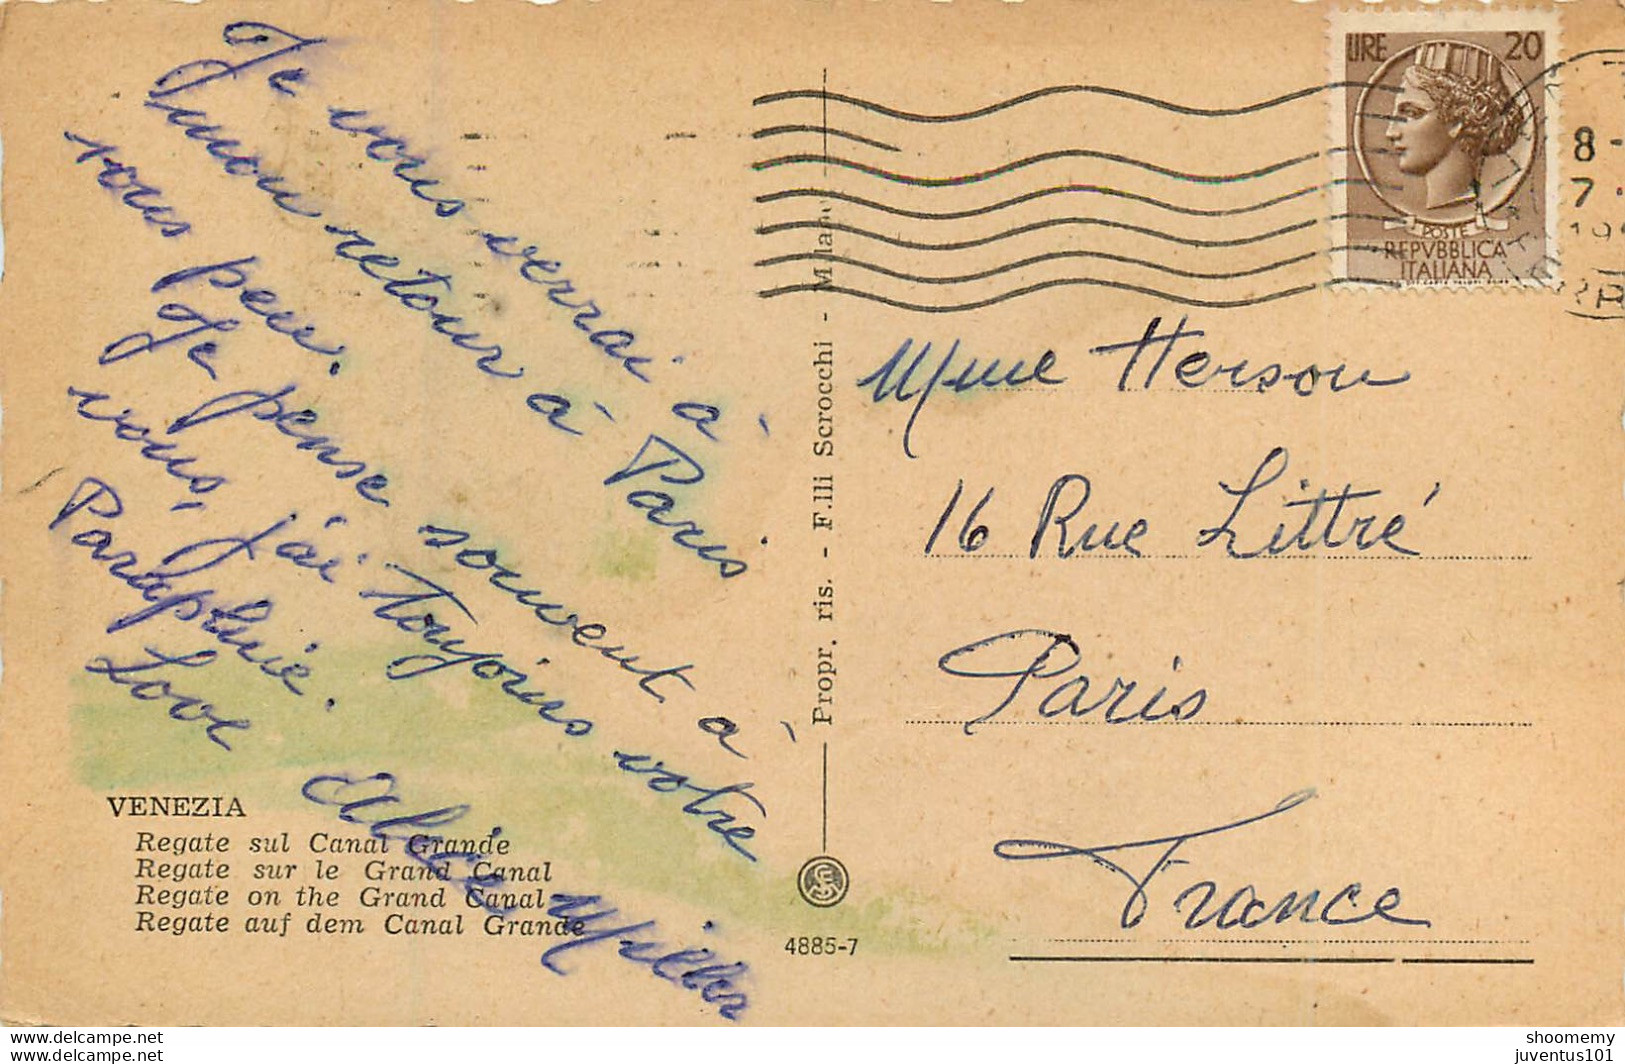 Je vous verrai à
mon retour à Paris
sous peu.
Je pense souvent à
vous, j'ai toujours votre
Parapluie.
Love
Miller
VENEZIA
Regate sul Canal Grande
Regate sur le Grand Canal
Regate on the Grand Canal
Regate auf dem Canal Grande
Propr. ris. - F.lli Scrocchi - Milano
4885-7
LIRE 20
POSTE
REPVBBLICA
ITALIANA
8-
7.
Mme Herson
16 Rue Littré
Paris
France
shoomemy
juventus101